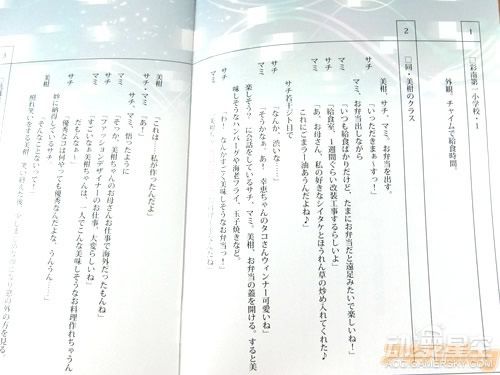 1
□彩南第一小学校・1
外観。チャイムで給食時間。
2
□同・美柑のクラス
美柑、サチ、マミ、お弁当を出す。
サチ「いっただきまぁ~すっ!」
マミ、お弁当出しながら
マミ「いつも給食ばかりだけど、たまにお弁当だと遠足みたいで楽しいね!」
美柑「給食室、1週間ぐらい改装工事するらしいよ」
サチ「あ、お母さん、私の好きなシイタケとほうれん草の炒め入れてくれた♪
これにごまラー油あうんだよね♪」
サチ若干ジト目で
マミ「なんか、渋いな……」
サチ「そうかなぁ。あ!幸恵ちゃんのタコさんウィンナー可愛いね」
楽しそう?に会話をしているサチ、マミ。美柑、お弁当の蓋を開ける。すると美
味しそうなハンバーグや海老フライ、玉子焼きなど。
美柑「これは…私が作ったんだよ」
サチ・マミ「あ!」
サチ、マミ、悟ったように
マミ「そっか、美柑ちゃんのお母さんお仕事で海外だったもんね」
サチ「ファッションデザイナーのお仕事、大変らしいね」
マミ「すごいなぁ美柑ちゃんは。一人でこんな美味しそうなお料理作れちゃうん
だもんなぁ」
サチ「優秀なコは何やっても優秀なんだよな、うんうん……」
妙に納得しているサチ。
美柑「そんなことないって!」
ACG.GAMERSKY.COM